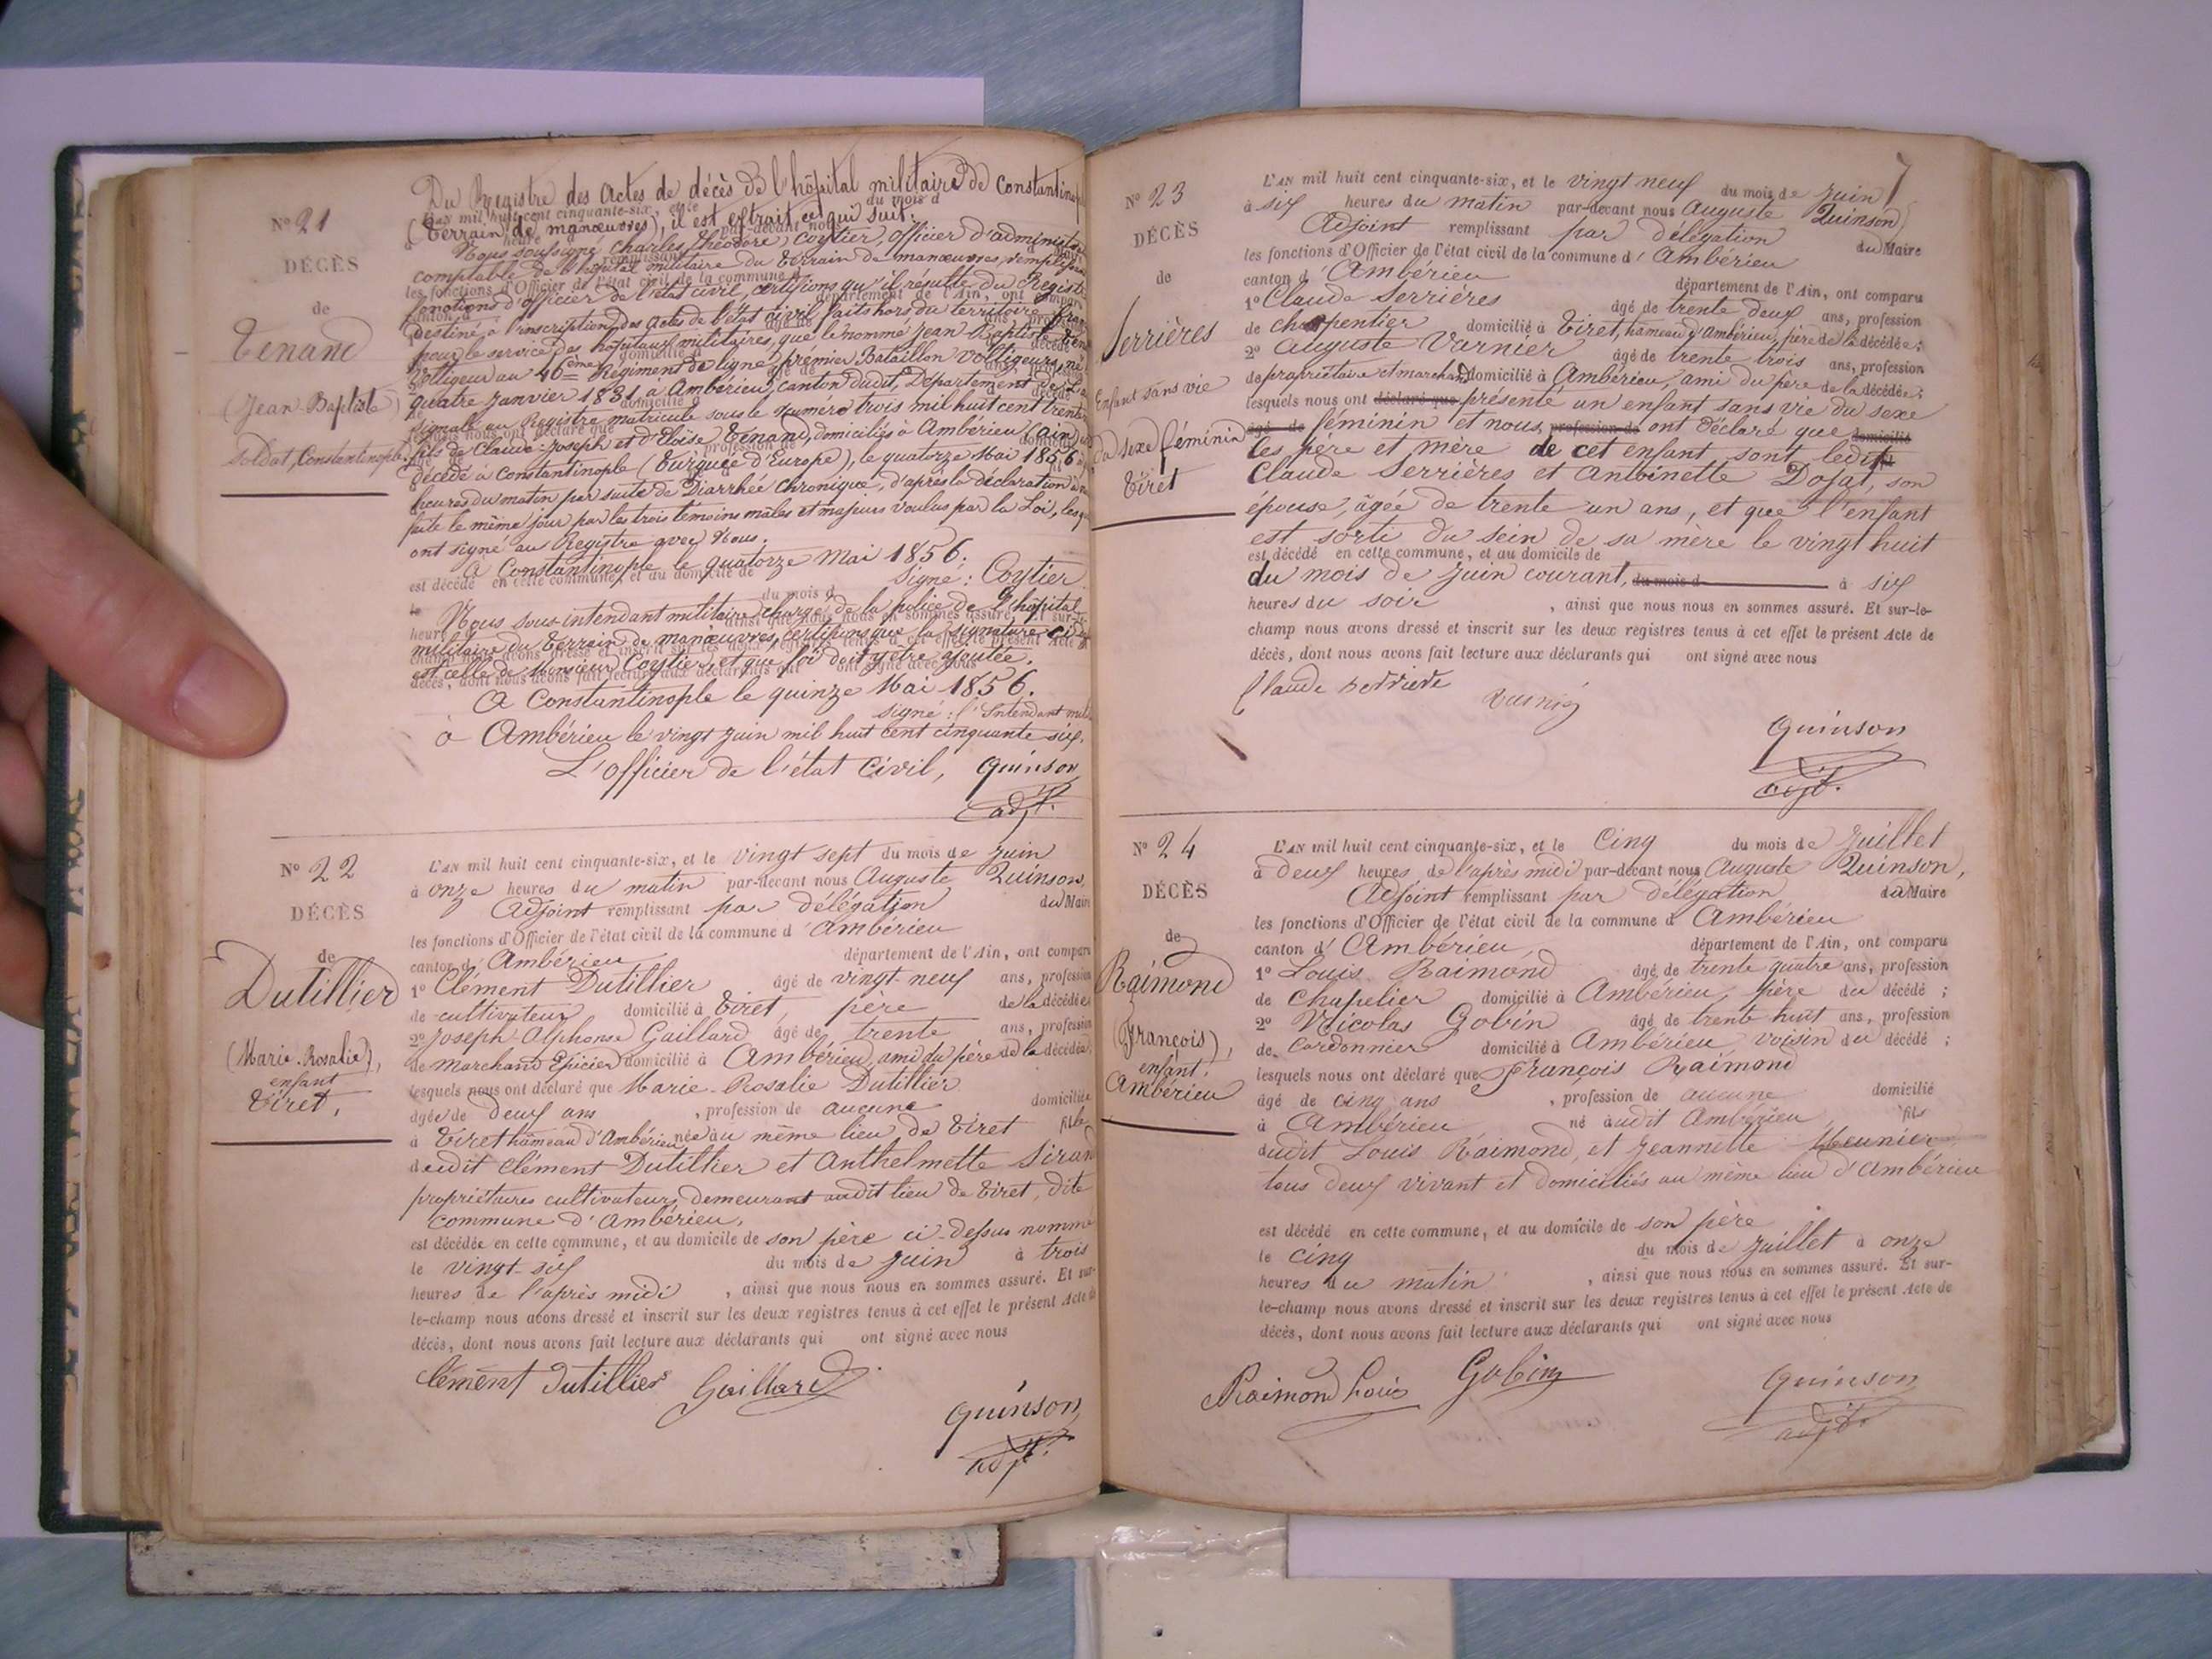 N° 21
DÉCÈS
de
Tenand
(Jean-Baptiste)
Soldat, Constantinople.
Du Registre des actes de décès de l'hôpital militaire de Constantinople
(terrain de manœuvres), il est extrait ce qui suit:
Nous soussigné Charles, Théodore, Coytier, officier d'administration
comptable de l'hôpital militaire du terrain de manœuvres, remplissant
fonctions d'officier de l'état civil, certifions qu'il résulte du Registre
destiné à l'inscription des actes de l'état civil faits hors du territoire
pour le service des hôpitaux militaires, que le nommé Jean Baptiste Tenand
voltigeur au 46ème Régiment de ligne, premier Bataillon voltigeurs, né
quatre janvier 1831 à Ambérieu, canton dudit, Département de l'Ain
signalé au Registre matricule sous le numéro trois mil huit cent trente
fils de Claude-Joseph et d'Eloïse Tenand, domiciliés à Ambérieu (Ain)
décédé à Constantinople (Turquie d'Europe), le quatorze Mai 1856 à
heures du matin par suite de Diarrhée chronique, d'après la déclaration
faite le même jour par les trois témoins mâles et majeurs voulus par la Loi, lesq
ont signé au Registre avec Nous.
A Constantinople le quatorze mai 1856.
Signé: Coytier
Nous sous-intendant militaire chargé de la police de l'hôpital
militaire du terrain de manœuvres, certifions que la signature ci
est celle de Monsieur Coytier, et que foi doit y être ajoutée.
A Constantinople le quinze Mai 1856.
Signé: l'Intendant mil
à Ambérieu le vingt juin mil huit cent cinquante six.
L'officier de l'état civil, Quinson
adjt.
N° 22
DÉCÈS
de
Dutillier
(Marie-Rosalie),
enfant
Tiret,
L'AN mil huit cent cinquante-six, et le vingt sept du mois de juin
à onze heures du matin par-devant nous Auguste Quinson,
Adjoint remplissant par délégation du Maire
les fonctions d'Officier de l'état civil de la commune d'Ambérieu
canton d'Ambérieu département de l'Ain, ont comparu
1° Clément Dutillier âgé de vingt-neuf ans, profession
de cultivateur domicilié à Tiret, père de la décédée
2° Joseph-Alphonse Gaillard âgé de trente ans, profession
de marchand Epicier domicilié à Ambérieu, ami du père de la décédée;
lesquels nous ont déclaré que Marie-Rosalie Dutillier
âgée de deux ans , profession de aucune domiciliée
à Tiret hameau d'Ambérieu née au même lieu de Tiret fille
dudit Clément Dutillier et Anthelmette Sirand
propriétaires cultivateurs demeurant audit lieu de Tiret, dite
commune d'Ambérieu,
est décédée en cette commune, et au domicile de son père ci-dessus nommé
le vingt-six du mois de juin à trois
heures de l'après midi , ainsi que nous nous en sommes assuré. Et sur-
le-champ nous avons dressé et inscrit sur les deux registres tenus à cet effet le présent Acte de
décès, dont nous avons fait lecture aux déclarants qui ont signé avec nous
Clément Dutillier Gaillard
Quinson
adjt.
7
N° 23
DÉCÈS
de
Serrières
Enfant sans vie
du sexe féminin
Tiret
L'AN mil huit cent cinquante-six, et le vingt neuf du mois de juin
à six heures du matin par-devant nous Auguste Quinson,
Adjoint remplissant par délégation du Maire
les fonctions d'Officier de l'état civil de la commune d'Ambérieu
canton d'Ambérieu département de l'Ain, ont comparu
1° Claude Serrières âgé de trente deux ans, profession
de charpentier domicilié à Tiret, hameau d'Ambérieu, père de la décédée;
2° Auguste Varnier âgé de trente trois ans, profession
de propriétaire et marchand domicilié à Ambérieu, ami du père de la décédée;
lesquels nous ont déclaré que présenté un enfant sans vie du sexe
âgé de féminin et nous profession de ont déclaré que domicilié
les père et mère de cet enfant sont ledit
Claude Serrières et Antoinette Dosat, son
épouse, âgée de trente un ans, et que l'enfant
est sorti du sein de sa mère le vingt huit
est décédé en cette commune, et au domicile de
du mois de juin courant, du mois d à six
heures du soir , ainsi que nous nous en sommes assuré. Et sur-le-
champ nous avons dressé et inscrit sur les deux registres tenus à cet effet le présent Acte de
décès, dont nous avons fait lecture aux déclarants qui ont signé avec nous
Claude Serriere
Quinson
adjt.
N° 24
DÉCÈS
de
Raimond
(François),
enfant.
Ambérieu
L'AN mil huit cent cinquante-six, et le cinq du mois de juillet
à deux heures de l'après midi par-devant nous Auguste Quinson,
Adjoint remplissant par délégation du Maire
les fonctions d'Officier de l'état civil de la commune d'Ambérieu
canton d'Ambérieu, département de l'Ain, ont comparu
1° Louis Raimond âgé de trente quatre ans, profession
de Chapelier domicilié à Ambérieu, père du décédé ;
2° Nicolas Gobin âgé de trente huit ans, profession
de Cordonnier domicilié à Ambérieu voisin du décédé ;
lesquels nous ont déclaré que François Raimond
âgé de cinq ans , profession de aucune domicilié
à Ambérieu né audit Ambérieu fils
dudit Louis Raimond, et Jeannette Meunier
tous deux vivant et domiciliés au même lieu d'Ambérieu
est décédé en cette commune, et au domicile de son père
le cinq du mois de juillet à onze
heures du matin , ainsi que nous nous en sommes assuré. Et sur-
le-champ nous avons dressé et inscrit sur les deux registres tenus à cet effet le présent Acte de
décès, dont nous avons fait lecture aux déclarants qui ont signé avec nous
Raimond Louis Gobin
Quinson
adjt.